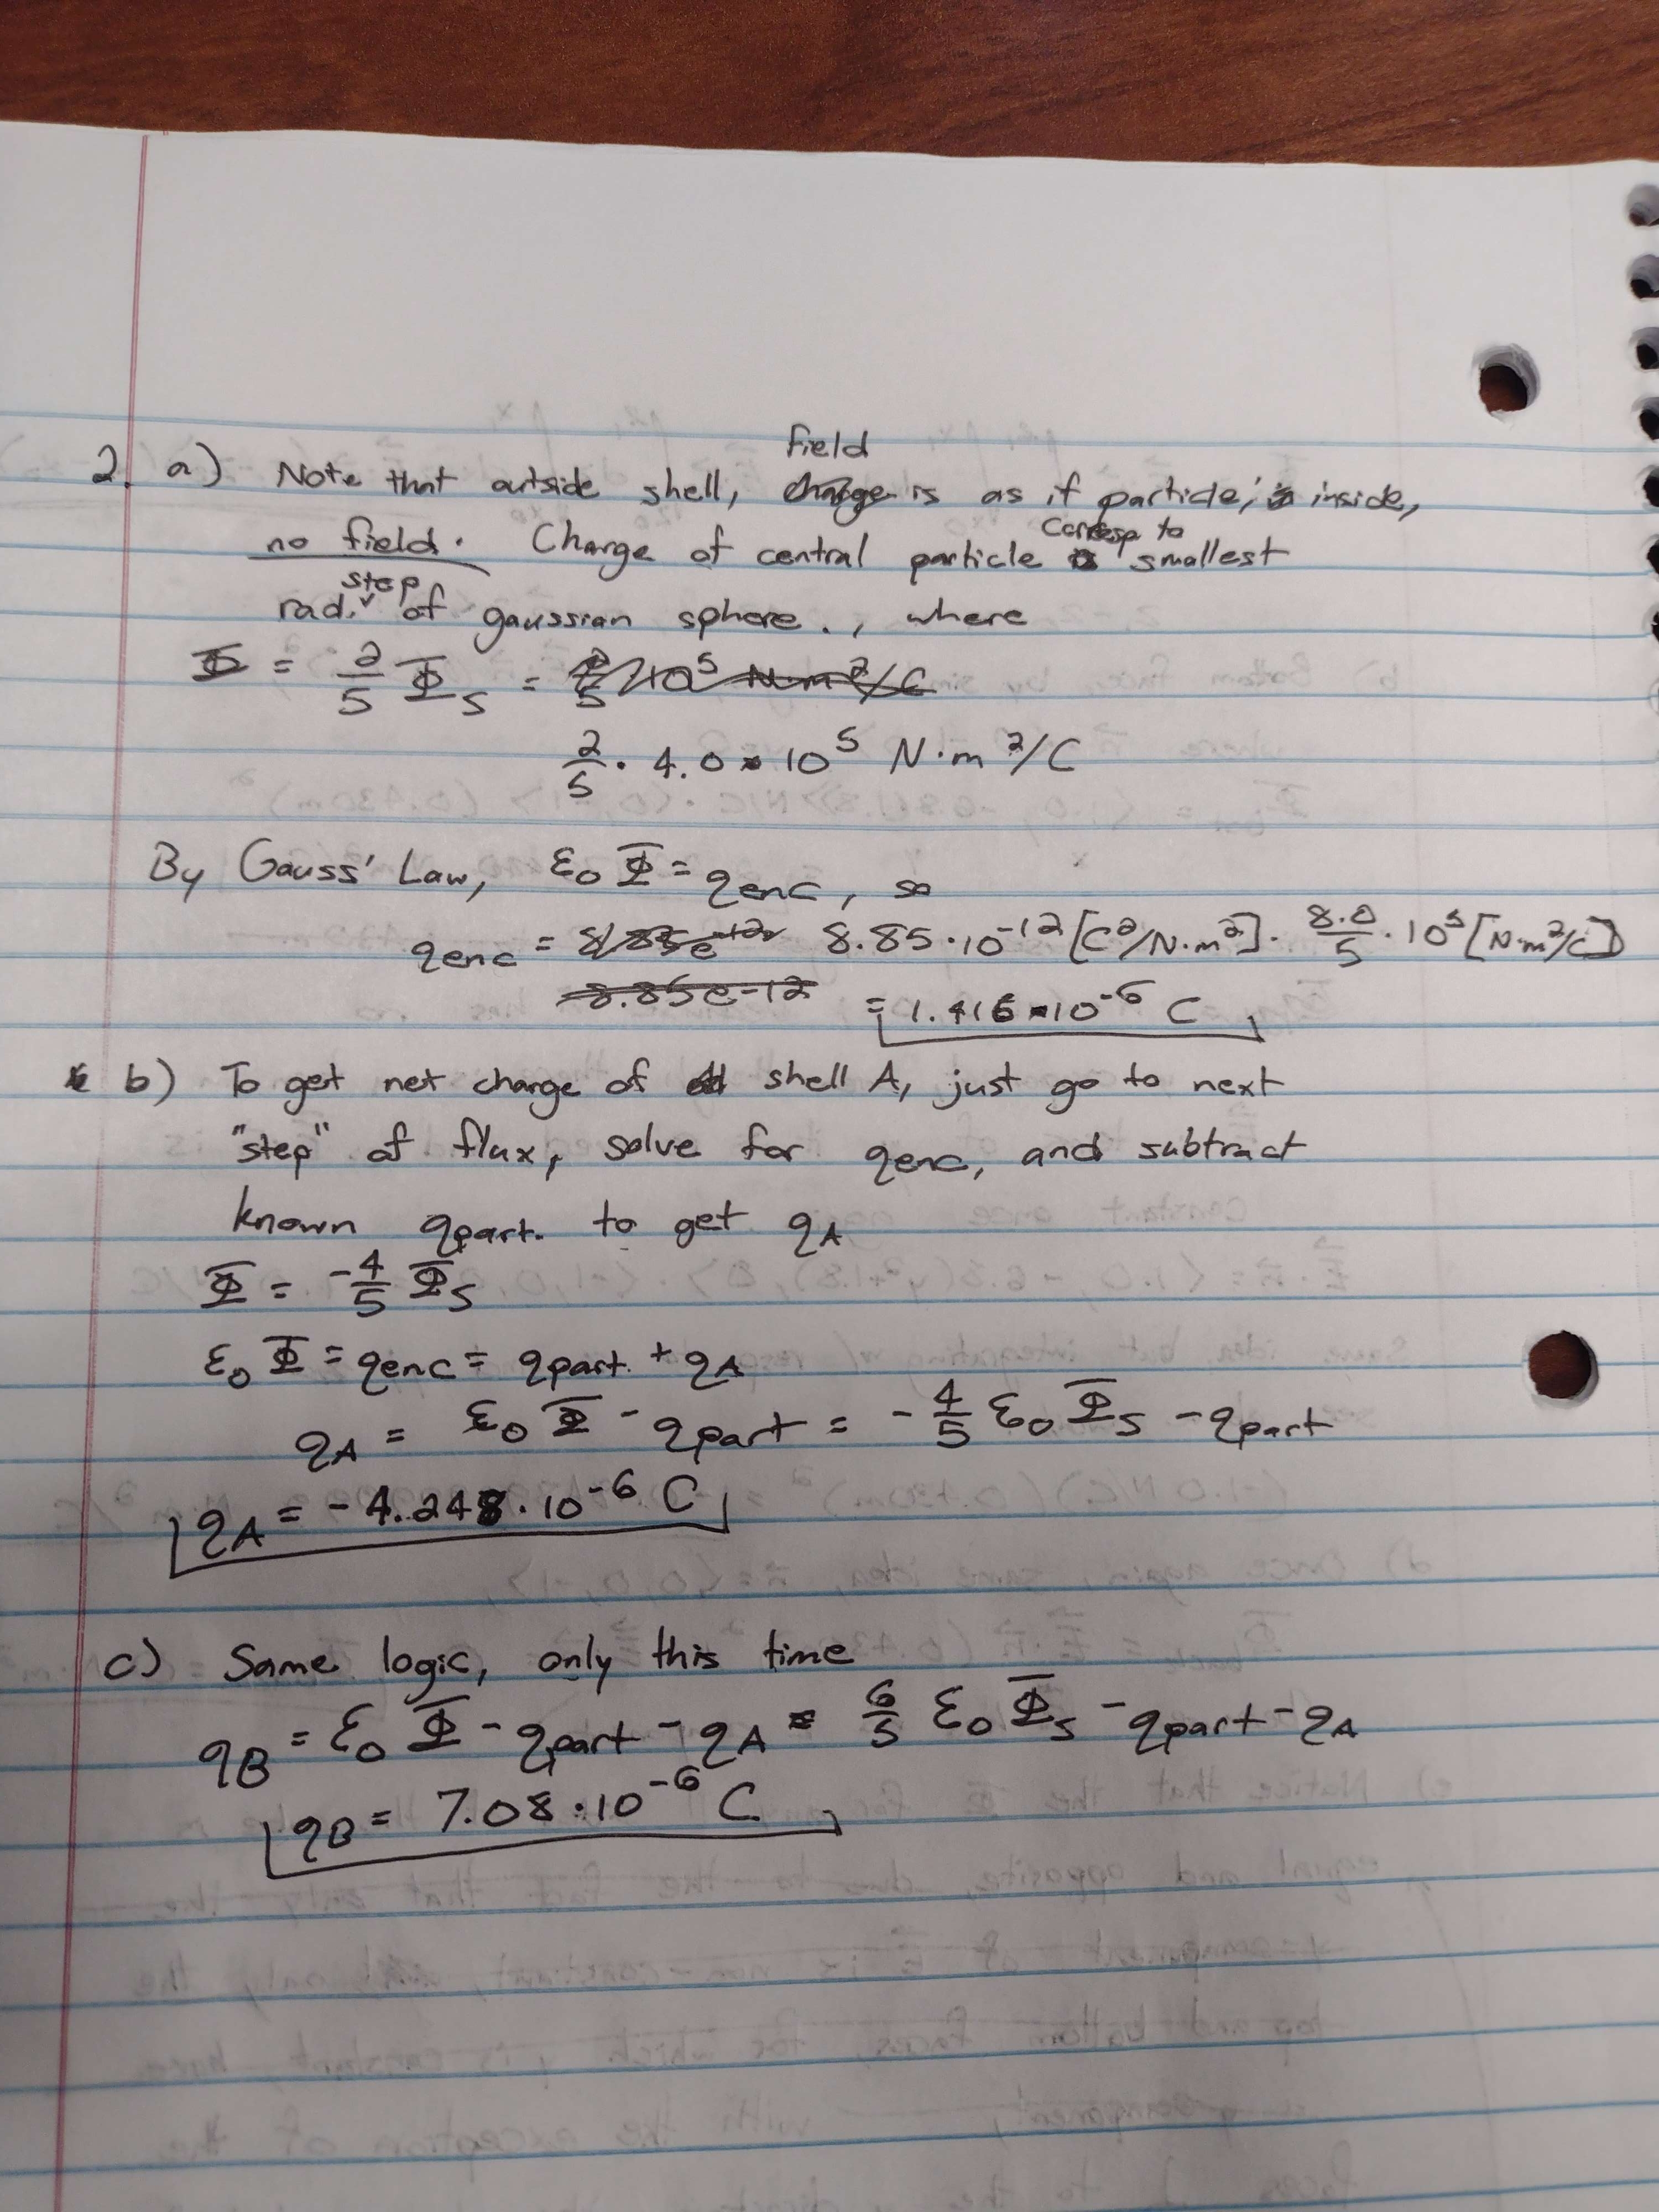 field
2. a) Note that outside shell, is as if particle; inside,
no field. Charge of central particle corresp to smallest
step
rad. of gaussian sphere., where
Φ = 2/5 Φ_S =
2/5 · 4.0 · 10^5 N·m^2/C
By Gauss' Law, ε_0 Φ = q_enc, so
q_enc = 8.85·10^-12 [C^2/N·m^2] · 8.0/5 · 10^5 [N·m^2/C]
8.85e-12 = 1.416·10^-6 C
b) To get net charge of shell A, just go to next
"step" of flux, solve for q_enc, and subtract
known q_part. to get q_A
Φ = -4/5 Φ_S
ε_0 Φ = q_enc = q_part. + q_A
q_A = ε_0 Φ - q_part = -4/5 ε_0 Φ_S - q_part
q_A = -4.248·10^-6 C
c) Same logic, only this time
q_B = ε_0 Φ - q_part - q_A = 6/5 ε_0 Φ_S - q_part - q_A
q_B = 7.08·10^-6 C